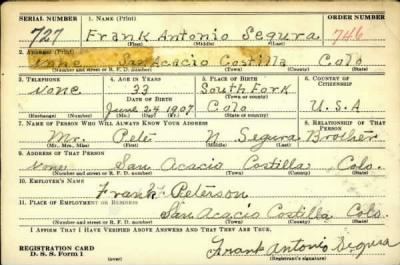 SERIAL NUMBER 1. NAME (Print) ORDER NUMBER
727 Frank Antonio Segura 746
(First) (Middle) (Last)
2. ADDRESS (Print)
None San Acacio Costilla Colo
(Number and street or R. F. D. number) (Town) (County) (State)
3. TELEPHONE 4. AGE IN YEARS 5. PLACE OF BIRTH 6. COUNTRY OF CITIZENSHIP
None 33 South Fork
DATE OF BIRTH (Town or county)
June 24 1907 Colo U.S.A
(Exchange) (Number) (Mo.) (Day) (Yr.) (State or country)
7. NAME OF PERSON WHO WILL ALWAYS KNOW YOUR ADDRESS 8. RELATIONSHIP OF THAT PERSON
Mr. Pete N. Segura Brother
(Mr., Mrs., Miss) (First) (Middle) (Last)
9. ADDRESS OF THAT PERSON
None San Acacio Costilla Colo.
(Number and street or R. F. D. number) (Town) (County) (State)
10. EMPLOYER'S NAME
Frank Peterson
11. PLACE OF EMPLOYMENT OR BUSINESS
San Acacio Costilla Colo.
(Number and street or R. F. D. number) (Town) (County) (State)
I AFFIRM THAT I HAVE VERIFIED ABOVE ANSWERS AND THAT THEY ARE TRUE.
REGISTRATION CARD
D. S. S. Form 1 (over) Frank Antonio Segura
(Registrant's signature)